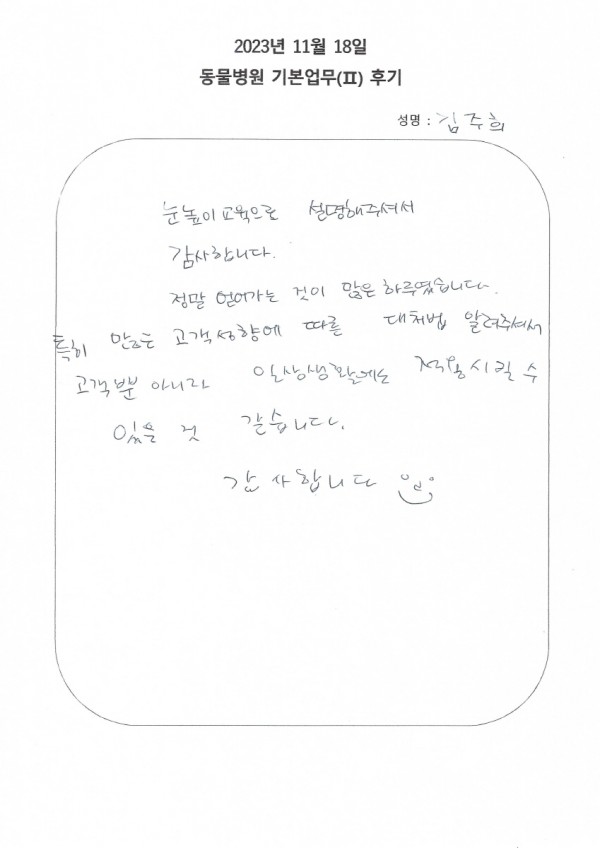 2023년 11월 18일
동물병원 기본업무(Ⅱ) 후기
성명 : 김주희
눈높이교육으로 설명해주셔서
감사합니다.
정말 얻어가는 것이 많은 하루였습니다.
특히 많은 고객성향에 따른 대처법 알려주셔서
고객분 아니라 일상생활에도 적용시킬 수
있을 것 같습니다.
감사합니다